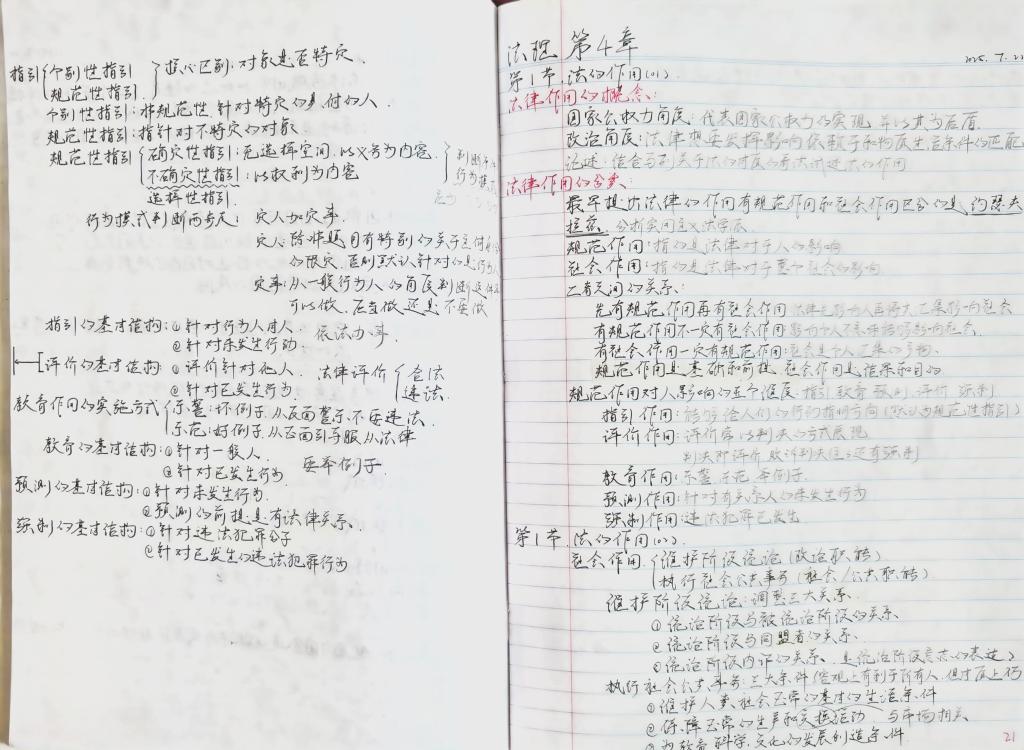 指引{个别性指引 }核心区别:对象是否特定.
规范性指引.
个别性指引:非规范性.针对特定的具体的人
规范性指引:指针对不特定的对象
规范性指引{确定性指引:无选择空间.以义务为内容.
不确定性指引:以权利为内容
选择性指引.
行为模式判断两步走:定人加定事.
定人:除非题目有特别的关于主体身份
的限定.否则默认针对的是行为人
定事:从一般行为人的角度判断这件事
可以做.应当做还是不要做
指引的基本结构:①针对行为人本人. 依法办事.
②针对未发生行动.
评价的基本结构:①评价针对他人. 法律评价{合法
②针对已发生行为. 违法.
教育作用的实施方式{示警:坏例子.从反面警示不要违法.
示范:好例子.从正面引导服从法律
教育的基本结构:①针对一般人. 要举例子.
②针对已发生行为.
预测的基本结构:①针对未发生行为.
②预测的前提是有法律关系.
强制的基本结构:①针对违法犯罪分子
②针对已发生的违法犯罪行为
法理 第4章
第1节.法的作用(01).
法律作用的概念:
国家公权力角度:代表国家公权力的实现.并以其为后盾.
政治角度:法律想要发挥影响依赖于和物质生活条件的匹配
论述:结合马列关于法的本质的看法阐述法的作用
法律作用的分类:
最早提出法律的作用有规范作用和社会作用区分的是约瑟夫
拉兹.分析实用主义法学派.
规范作用:指的是法律对于人的影响
社会作用:指的是法律对于整个社会的影响.
二者之间的关系:
先有规范作用再有社会作用
有规范作用不一定有社会作用
有社会作用一定有规范作用:社会是个人汇集的产物.
规范作用是基础和前提.社会作用是结果和目的
规范作用对人影响的五个维度:指引 教育 预测.评价 强制
指引作用:能够给人们的行为指明方向(默认为规范性指引)
评价作用:评价常以判决的方式展现
教育作用:示警.示范.举例子.
预测作用:针对有关系人的未发生行为
强制作用:违法犯罪已发生
第1节.法的作用(02).
社会作用{维护阶级统治(政治职能)
执行社会公共事务(社会/公共职能)
维护阶级统治:调整三大关系.
①统治阶级与被统治阶级的关系
②统治阶级与同盟者的关系.
③统治阶级内部的关系.是统治阶级意志的表达)
执行社会公共事务:三大条件
①维护人类社会正常的基本的生活条件
②保障正常的生产和交换活动 与市场相关
③为教育科学.文化的发展创造条件
21